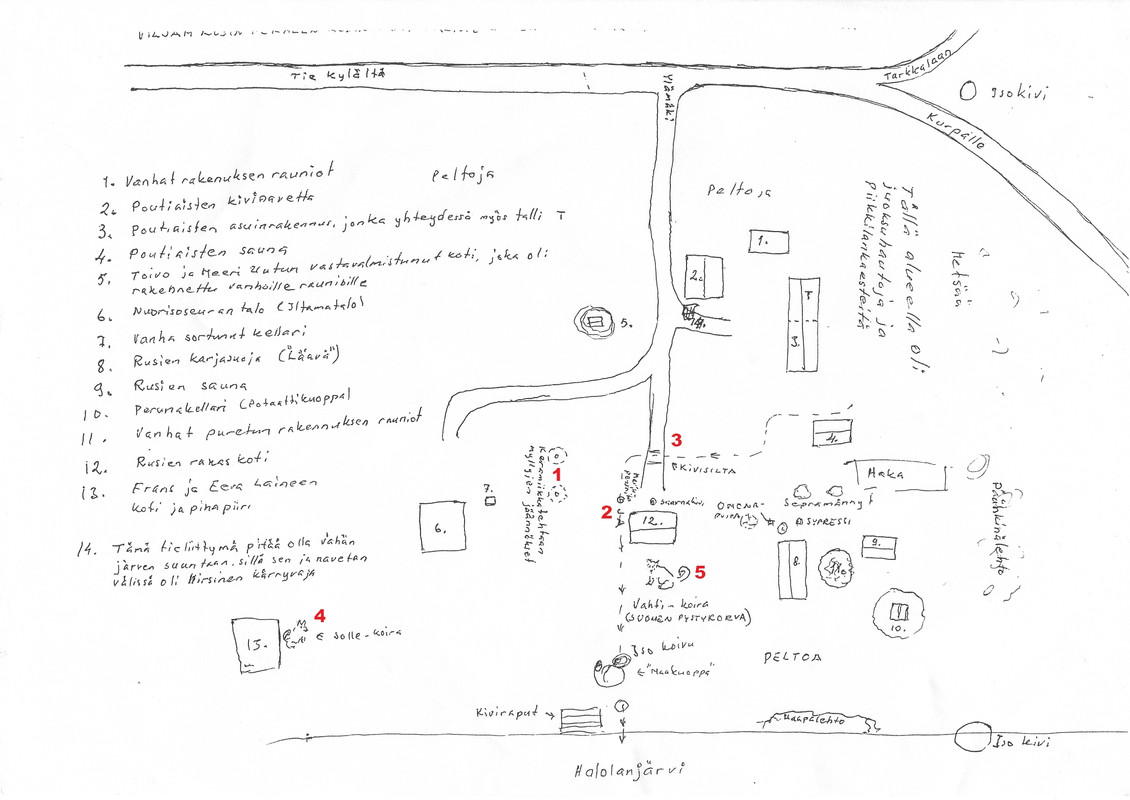 Tie kylältä
Ylämäki
Tarkkalaan
Isokivi
Kurpälle
Peltoja
Peltoja
1. Vanhat rakenuksen rauniot
2. Poutiaisten kivinavetta
3. Poutiaisten asuinrakennus, jonka yhteydessä myös talli T
4. Poutiaisten sauna
5. Toivo ja Meeri Uutun vastavalmistunut koti, joka oli
rakennettu vanhoille raunioille
6. Nuorisoseuran talo (Iltamatalo)
7. Vanha sortunut kellari
8. Rusien karjasuoja ("Läävä")
9. Rusien sauna
10. Perunakellari (Potaattikuoppa)
11. Vanhat puretun rakennuksen rauniot
12. Rusien rakas koti
13. Frans ja Eeva Laineen
koti ja pihapiiri
14. Tämä tieliittymä pitää olla vähän
järven suuntaan, sillä sen ja navetan
välissä oli hirsinen kärryvaja
Tällä alueella oli
juoksuhautoja ja
piikkilankaesteitä
Metsää
1.
2.
T
3.
14.
5.
4.
3
KIVISILTA
Haka
Keramiikkatehtaan
myllyjen jäännökset
1
2
7.
6.
12.
OMENA-
PUITA
Sepramännyt
SYPRESSI
Pähkinälehto
8.
9.
10.
5
Vahti-koira
(SUOMEN PYSTYKORVA)
4
13.
Solle-koira
Iso koivu
"Maakuoppa"
PELTOA
Kiviraput
Haapalehto
Iso kivi
Hololanjärvi